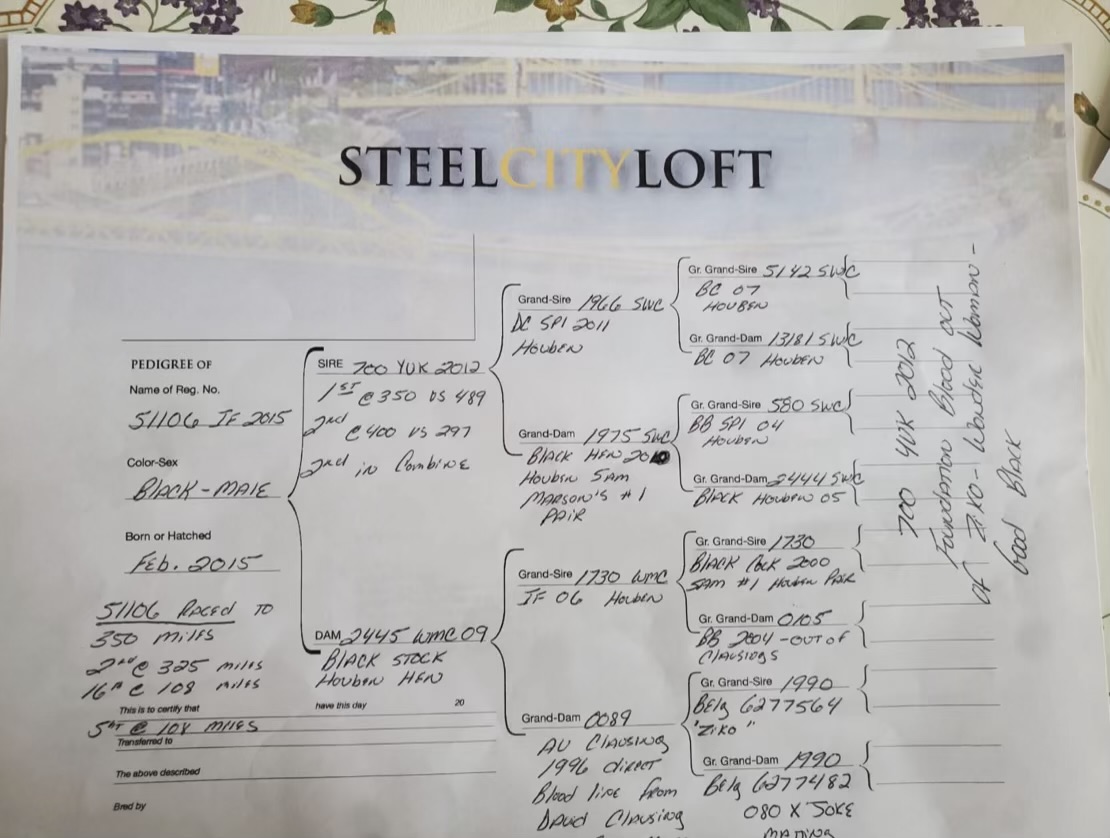 STEELCITYLOFT
PEDIGREE OF
Name of Reg. No.
51106 IF 2015
Color-Sex
BLACK-MALE
Born or Hatched
FEB. 2015
51106 RACED TO
350 MILES
2nd @ 325 MILES
16th @ 108 MILES
This is to certify that
have this day
20
5th @ 108 MILES
Transferred to
The above described
Bred by
SIRE 700 YUK 2012
1ST @ 350 VS 489
2nd @ 400 VS 297
2nd in COMBINE
DAM 2445 WMC 09
BLACK STOCK
HOUBEN HEN
Grand-Sire 1966 SWC
DC SPI 2011
HOUBEN
Grand-Dam 1975 SWC
BLACK HEN 2010
HOUBEN SAM
MARSON'S #1
PAIR
Grand-Sire 1730 WMC
IF 06 HOUBEN
Grand-Dam 0089
AU CLAUSING
1996 DIRECT
Blood line from
DAVID CLAUSING
Gr. Grand-Sire 5142 SWC
BC 07
HOUBEN
Gr. Grand-Dam 13181 SWC
BC 07 HOUBEN
Gr. Grand-Sire 580 SWC
BB SPI 04
HOUBEN
Gr. Grand-Dam 2444 SWC
BLACK HOUBEN 05
Gr. Grand-Sire 1730
BLACK COCK 2000
SAM #1 HOUBEN PAIR
Gr. Grand-Dam 0105
BB 2004 - OUT OF
CLAUSINGS
Gr. Grand-Sire 1990
BELG 6277564
"ZIKO"
Gr. Grand-Dam 1990
BELG 6277482
080 X JOKE
MATING
700 YUK 2012
Foundation Blood OUT
OF ZIKO - WONDER WOMAN -
Good Black